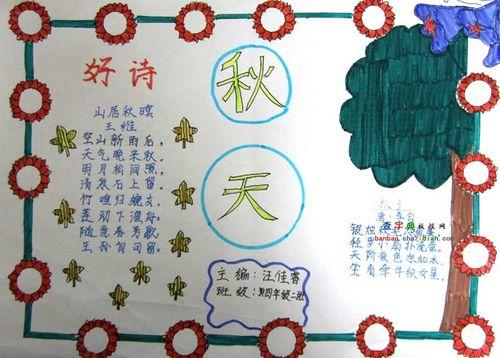 好诗
山居秋暝
王维
空山新雨后,
天气晚来秋.
明月松间照,
清泉石上留.
竹喧归女,
莲动下渔舟.
随意春芳歇,
王孙自可留.
秋
天
主编:汪佳睿
班级:四年级二班
秋夕
唐:李白
查字典板报网
banbao.chazidian.com
银烛秋屏
轻罗小扇扑流萤.
天阶夜色凉如水.
坐看牵牛织女星.